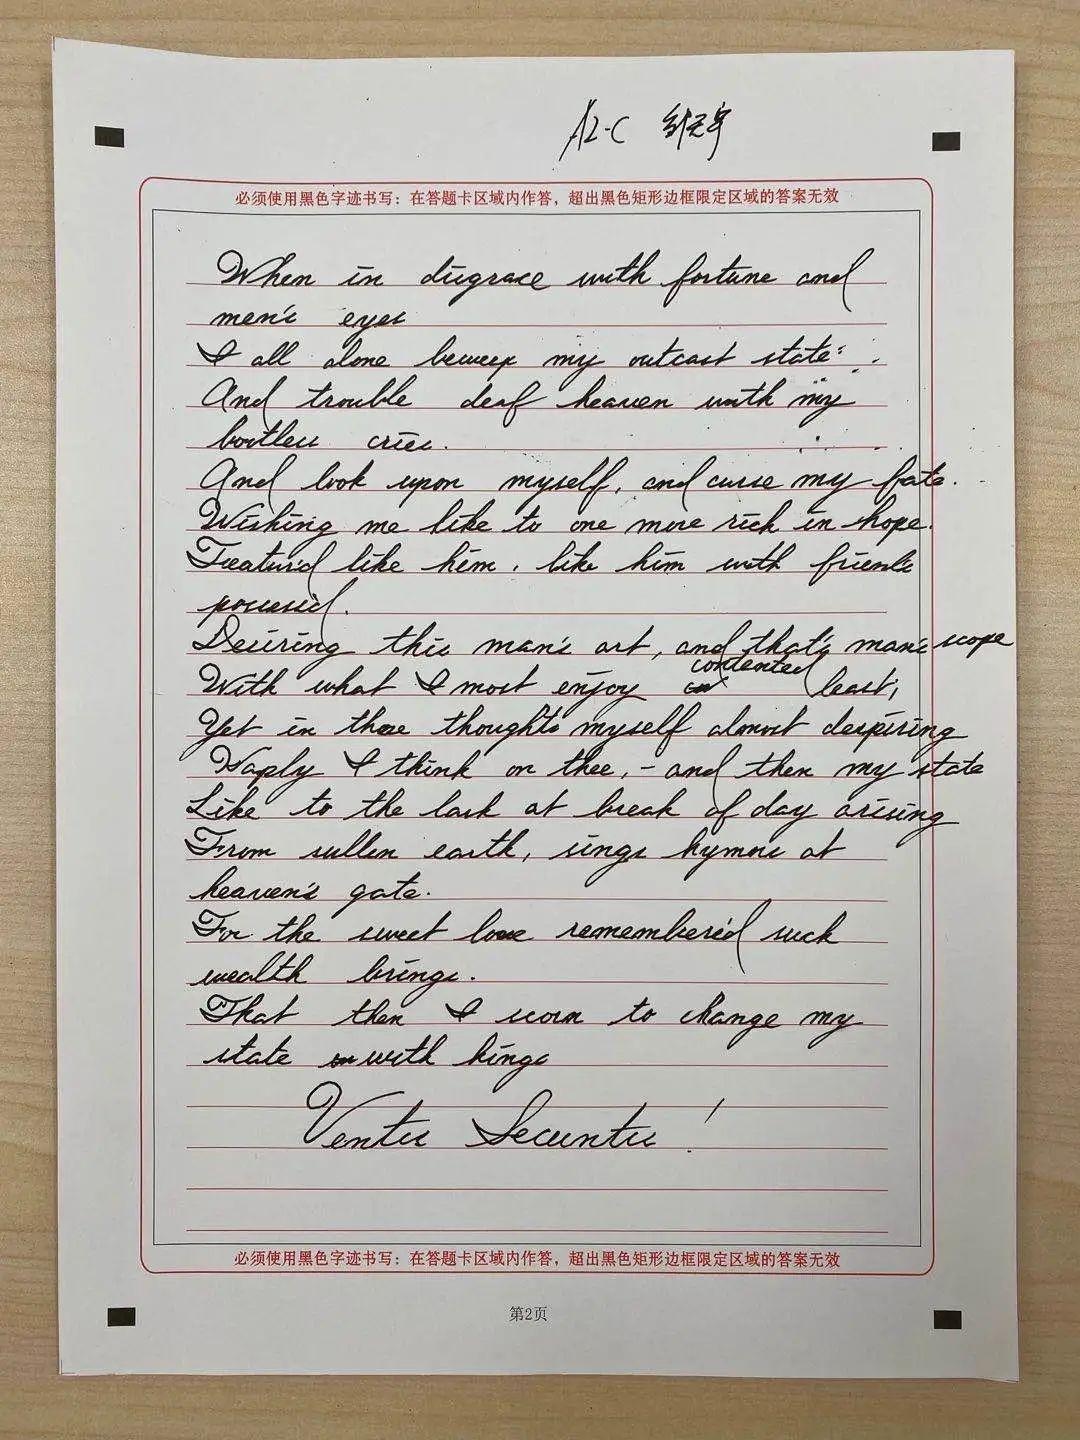 A2-C
必须使用黑色字迹书写：在答题卡区域内作答，超出黑色矩形边框限定区域的答案无效
When in disgrace with fortune and
men's eyes
I all alone beweep my outcast state:
And trouble deaf heaven with my
bootless cries.
And look upon myself, and curse my fate.
Wishing me like to one more rich in hope.
Featur'd like him, like him with friends
possessed.
Desiring this man's art, and that's man's scope
With what I most enjoy contented least,
Yet in these thoughts myself almost despising
Haply I think on thee, - and then my state
Like to the lark at break of day arising
From sullen earth, sings hymns at
heaven's gate.
For the sweet love remembered such
wealth brings.
That then I scorn to change my
state with kings
Ventis Secuntis!
必须使用黑色字迹书写：在答题卡区域内作答，超出黑色矩形边框限定区域的答案无效
第2页